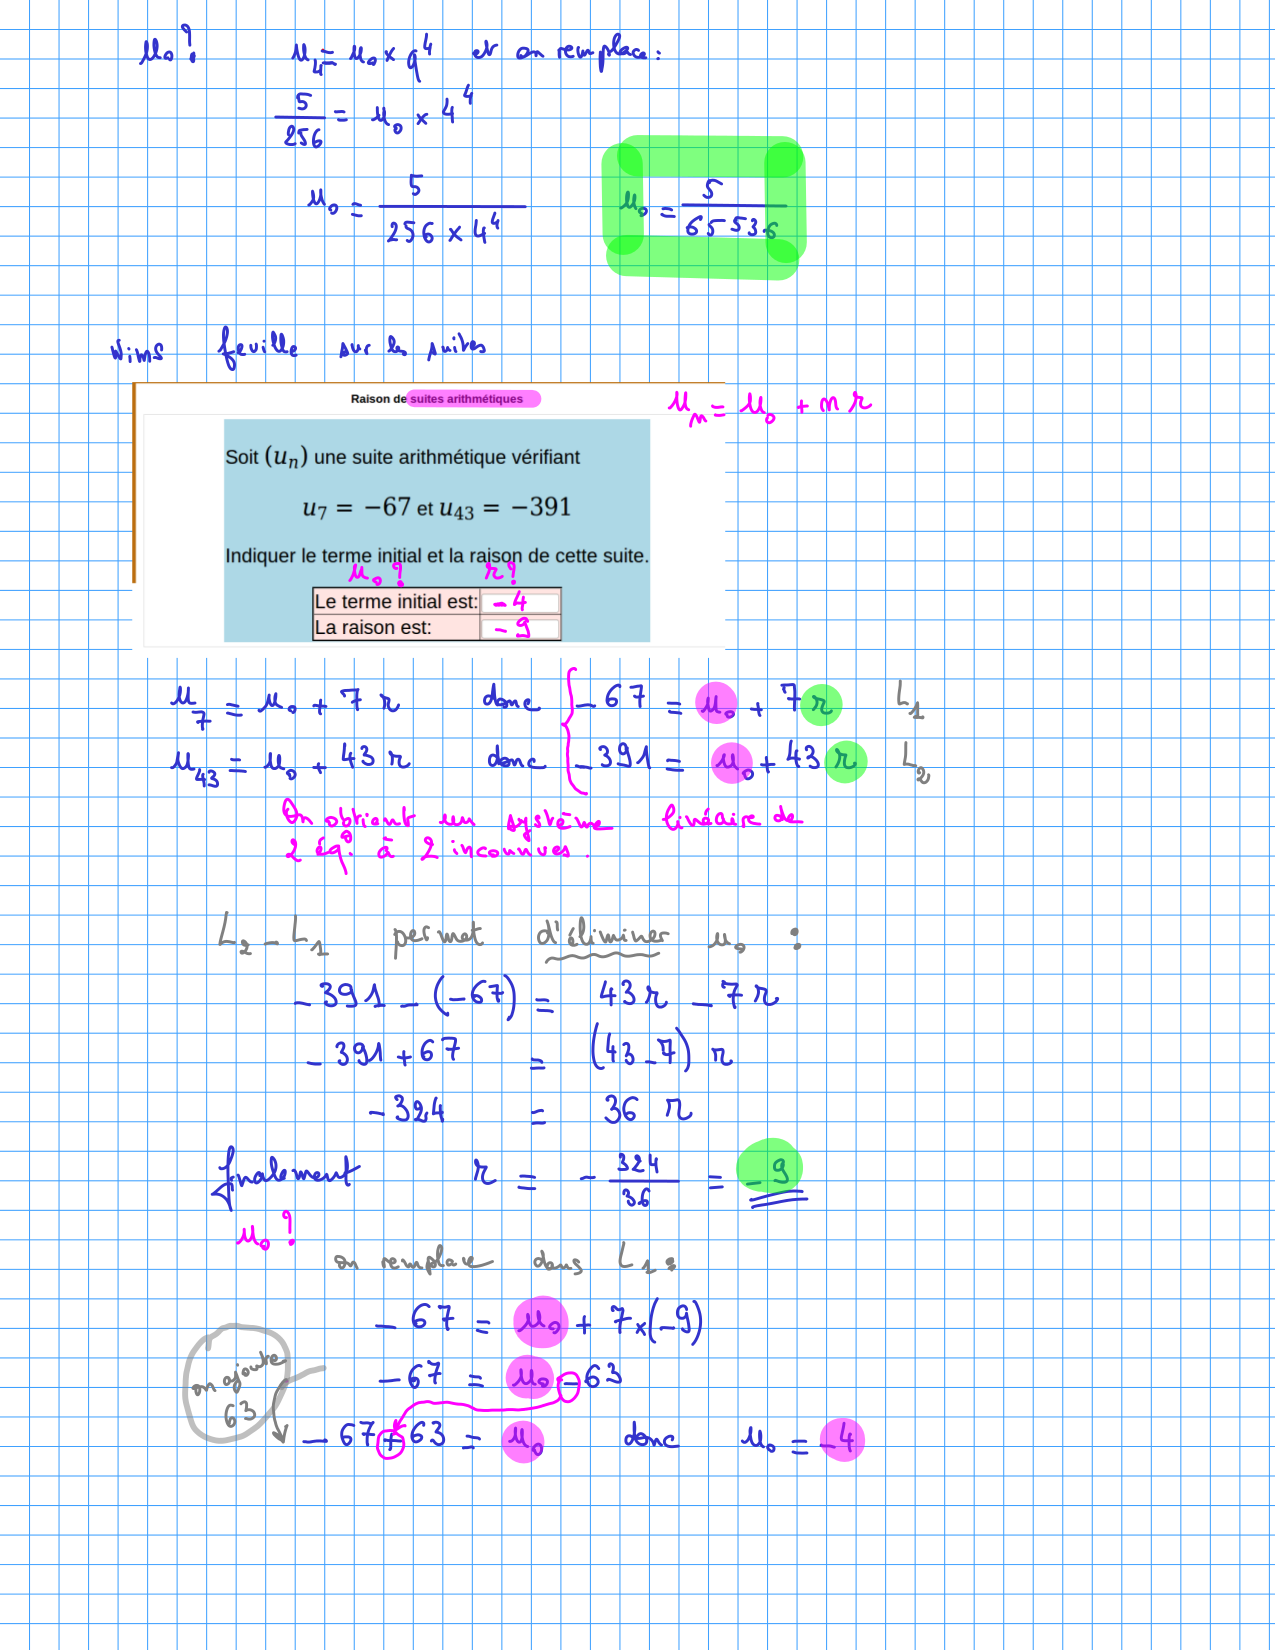 u₀ ?   u₄ = u₀ × q⁴   et on remplace :
5/256 = u₀ × 4⁴
u₀ = 5/(256 × 4⁴)   u₀ = 5/65536
Wims feuille sur les suites
Raison de suites arithmétiques
uₙ = u₀ + n r
Soit (uₙ) une suite arithmétique vérifiant
u₇ = −67 et u₄₃ = −391
Indiquer le terme initial et la raison de cette suite.
u₀ ?   r ?
Le terme initial est: −4
La raison est: −9
u₇ = u₀ + 7 r   donc   −67 = u₀ + 7 r   L₁
u₄₃ = u₀ + 43 r   donc   −391 = u₀ + 43 r   L₂
On obtient un système linéaire de
2 éq° à 2 inconnues.
L₂ − L₁ permet d'éliminer u₀ :
−391 − (−67) = 43 r − 7 r
−391 + 67 = (43 − 7) r
−324 = 36 r
finalement   r = −324/36 = −9
u₀ ?
on remplace dans L₁ :
−67 = u₀ + 7×(−9)
−67 = u₀ − 63
on ajoute
63
−67 + 63 = u₀   donc   u₀ = −4